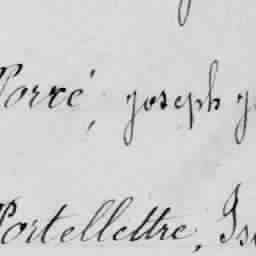 Porré, joseph
Portellettre, Is